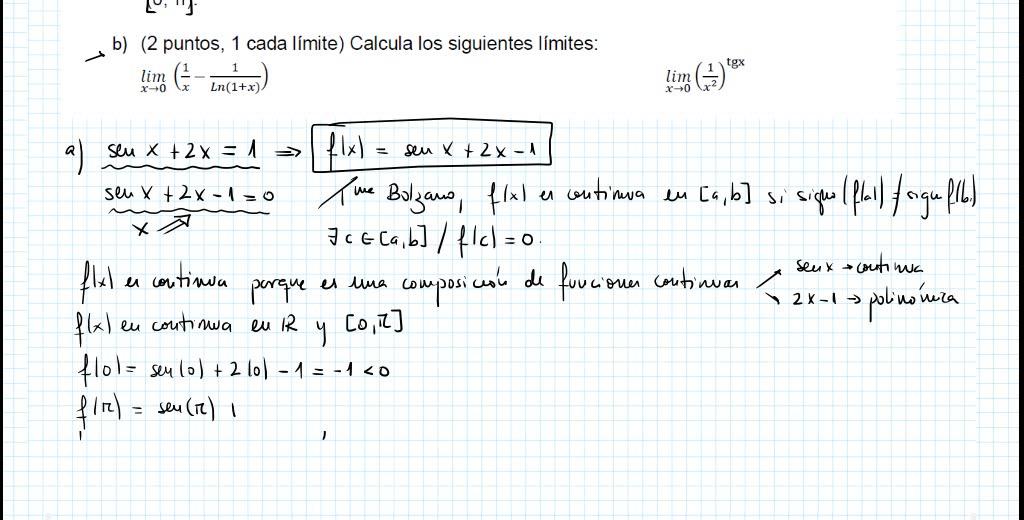 [0, π].
b) (2 puntos, 1 cada límite) Calcula los siguientes límites:
lim x→0 (1/x − 1/Ln(1+x)) lim x→0 (1/x²)^tgx
a) sen x + 2x = 1 ⇒ f(x) = sen x + 2x − 1
sen x + 2x − 1 = 0 Tma Bolzano, f(x) es continua en [a,b] si signo (f(a)) ≠ signo f(b)
x ∃ c ∈ [a,b] / f(c) = 0.
f(x) es continua porque es una composición de funciones continuas sen x → continua
2x−1 → polinómica
f(x) es continua en ℝ y [0,π]
f(0) = sen(0) + 2(0) − 1 = −1 < 0
f(π) = sen(π)